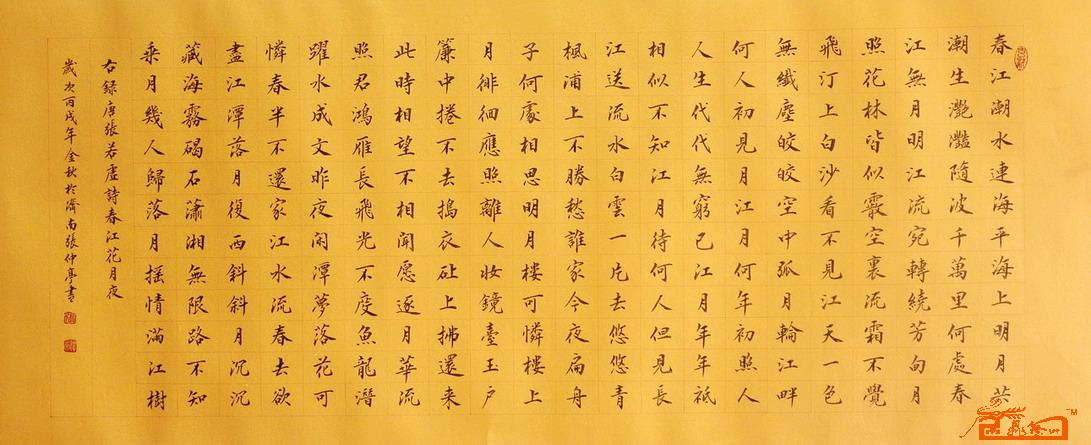 春江潮水連海平海上明月共
潮生灔灩隨波千萬里何處春
江無月明江流宛轉繞芳甸月
照花林皆似霰空裏流霜不覺
飛汀上白沙看不見江天一色
無纖塵皎皎空中孤月輪江畔
何人初見月江月何年初照人
人生代代無窮已江月年年祇
相似不知江月待何人但見長
江送流水白雲一片去悠悠青
楓浦上不勝愁誰家今夜扁舟
子何處相思明月樓可憐樓上
月徘徊應照離人妝鏡臺玉户
簾中捲不去搗衣砧上拂還来
此時相望不相聞愿逐月華流
照君鴻雁長飛光不度魚龍潛
躍水成文昨夜閑潭夢落花可
憐春半不還家江水流春去欲
盡江潭落月復西斜斜月沉沉
藏海霧碣石瀟湘無限路不知
乘月幾人歸落月摇情滿江樹
右録唐張若虛詩春江花月夜
歲次丙戌年金秋於濟南張仲亭書